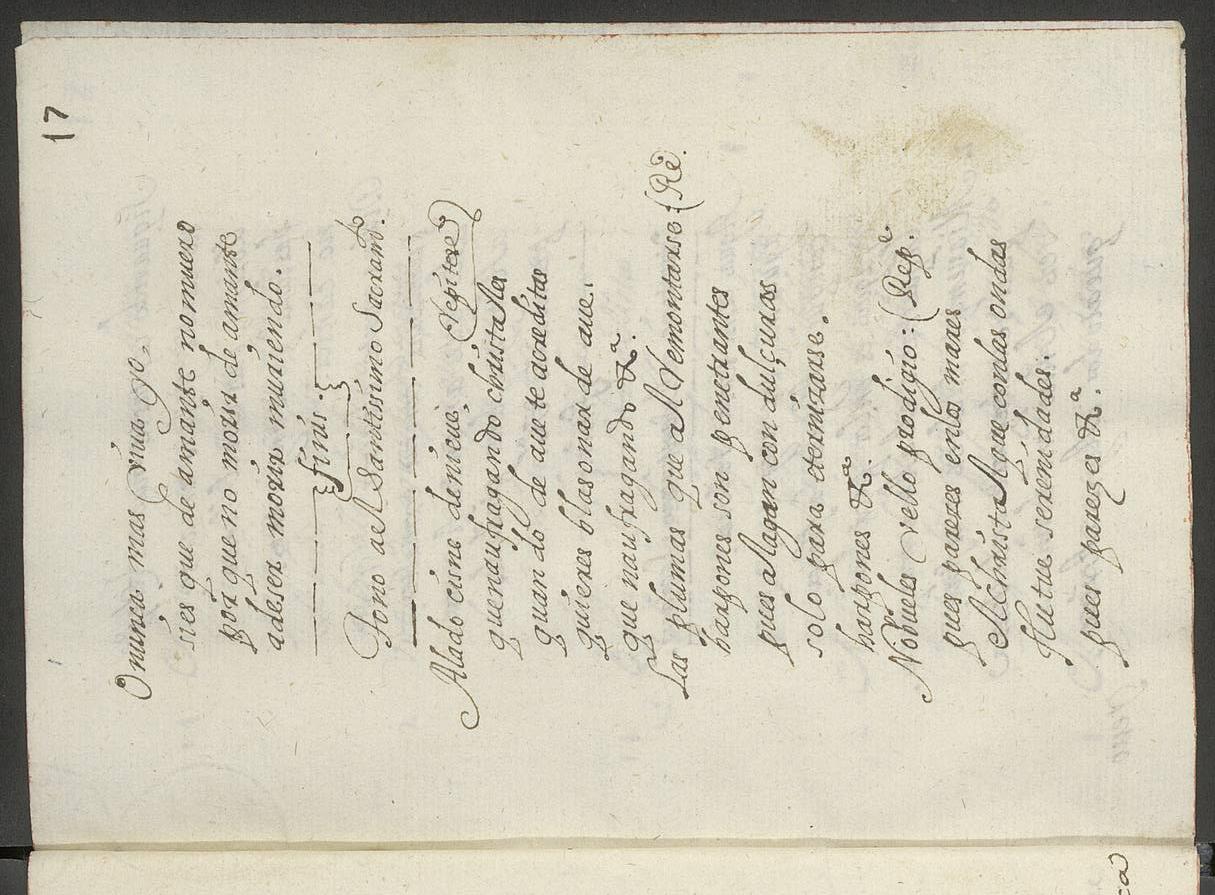 17
O nunca mas viva yo
sies que de amante no muero
por que no morir de amante
adeser morir muriendo.
finis.
Tono al Santissimo Sacramto.
Alado cisne denieue, (Repitese)
quenaufragando christales
quando de aue te acreditas
quieres blasonar de aue.
que naufragando &a.
Las plumas que al Remontarse: (Re
harpones son penetrantes
pues alagan con dulçuras
solo para eternizarse.
harpones &a.
No bueles vello prodigio: (Repe.
pues pareces entos mares
Al christal que con las ondas
Nutre serenidades:
puer parezes &a.